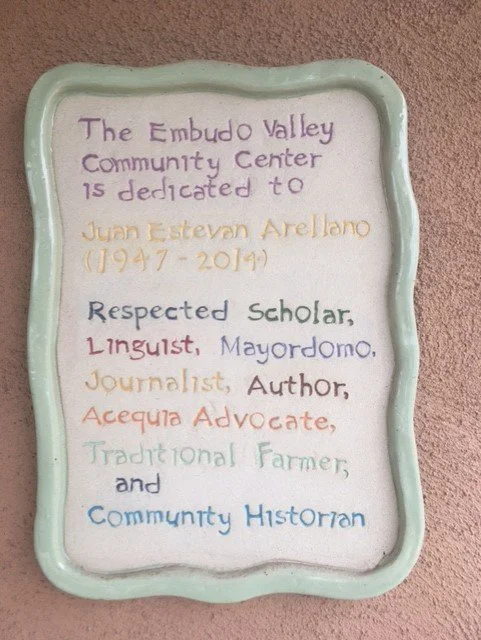 The Embudo Valley
Community Center
is dedicated to
Juan Estevan Arellano
(1947-2014)
Respected Scholar,
Linguist, Mayordomo.
Journalist, Author,
Acequia Advocate,
Traditional Farmer,
and
Community Historian